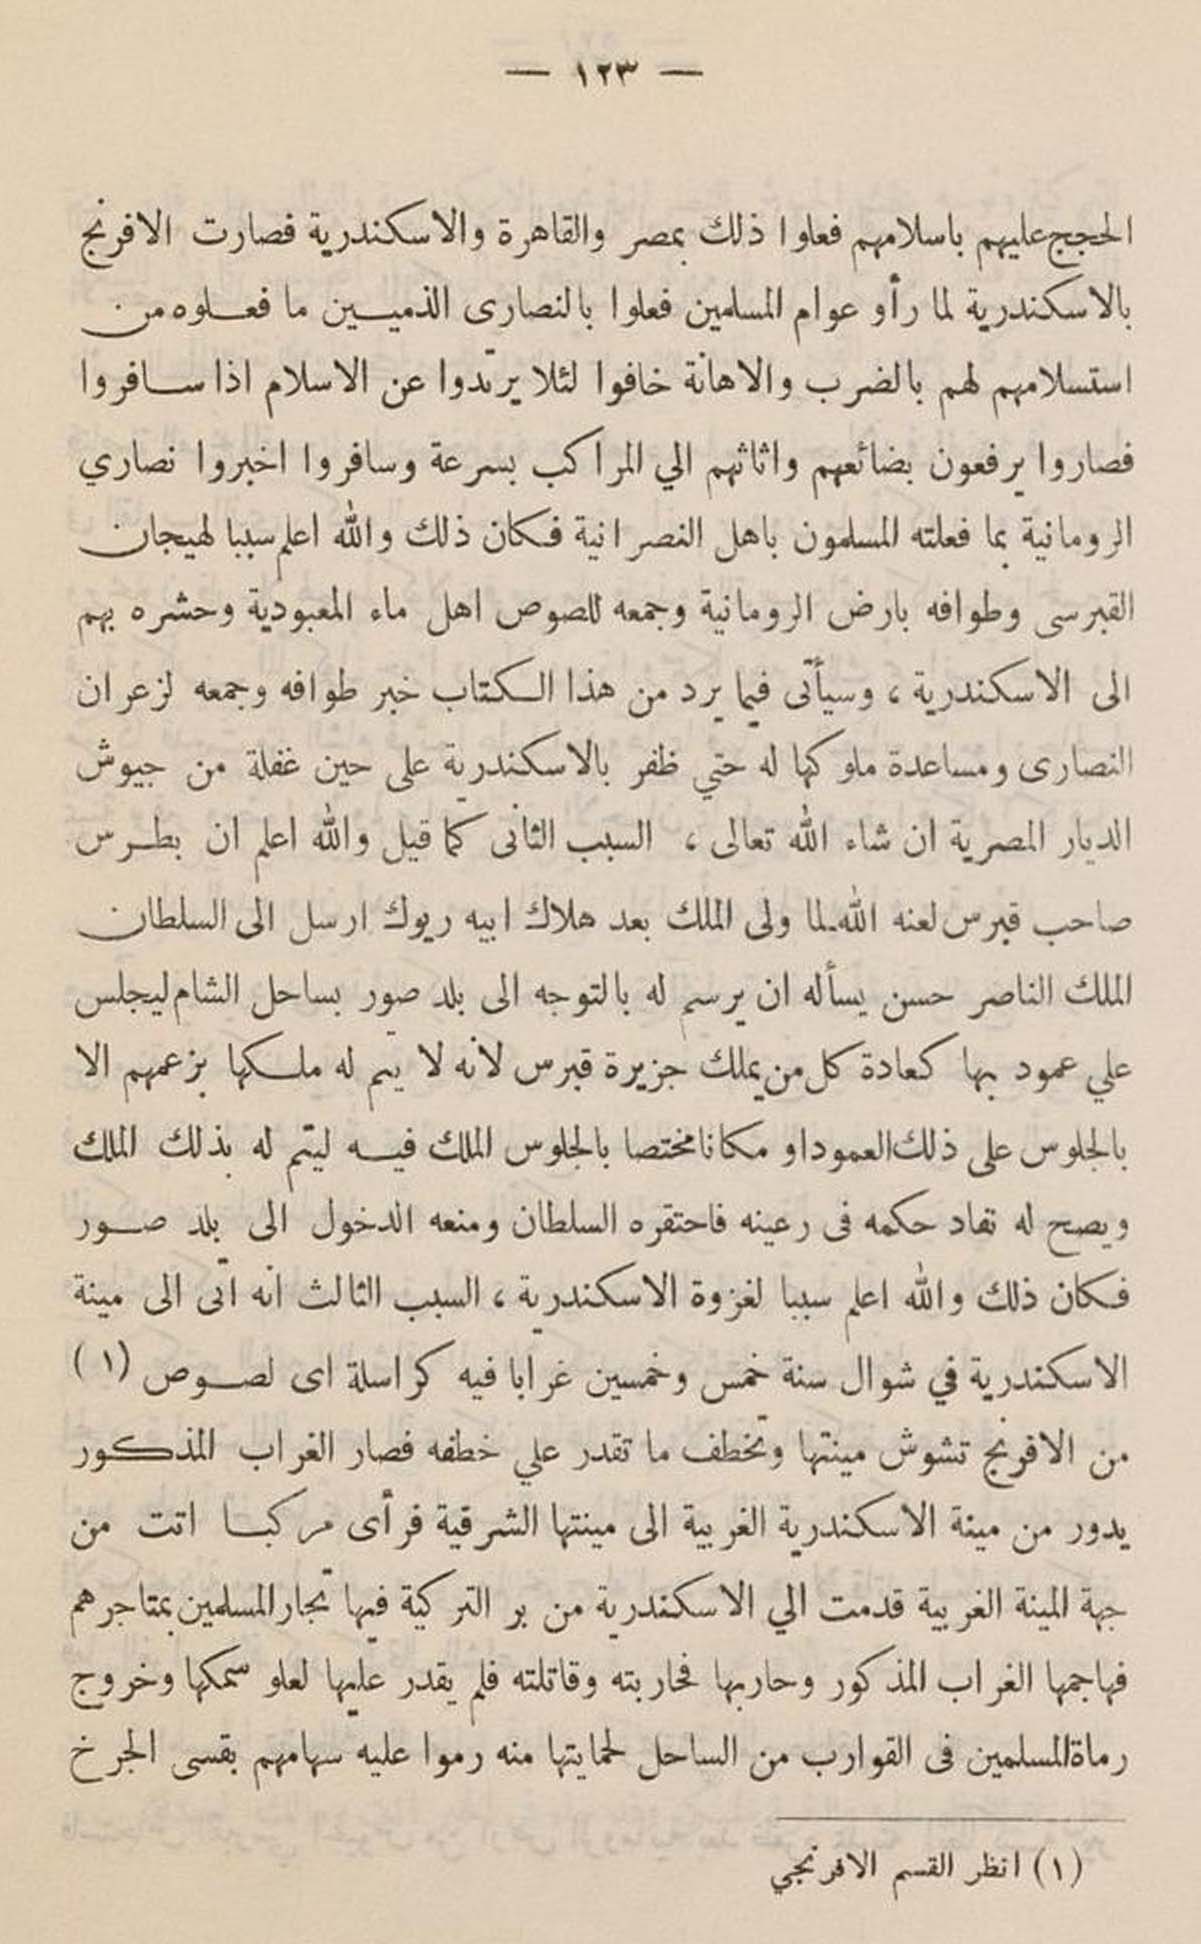 — ١٢٣ —
الحجج عليهم باسلامهم فعلوا ذلك بمصر والقاهرة والاسكندرية فصارت الافرنج
بالاسكندرية لما رأو عوام المسلمين فعلوا بالنصارى الذميين ما فعلوه من
استسلامهم لهم بالضرب والاهانة خافوا لئلا يرتدوا عن الاسلام اذا سافروا
فصاروا يرفعون بضائعهم واثاثهم الي المراكب بسرعة وسافروا اخبروا نصاري
الرومانية بما فعلته المسلمون باهل النصرانية فكان ذلك والله اعلم سببا لهيجان
القبرسى وطوافه بارض الرومانية وجمعه للصوص اهل ماء المعبودية وحشره بهم
الى الاسكندرية ، وسيأتى فيما يرد من هذا الكتاب خبر طوافه وجمعه لزعران
النصارى ومساعدة ملوكها له حتي ظفر بالاسكندرية على حين غفلة من جيوش
الديار المصرية ان شاء الله تعالى ، السبب الثانى كما قيل والله اعلم ان بطرس
صاحب قبرس لعنه الله لما ولى الملك بعد هلاك ابيه ريوك ارسل الى السلطان
الملك الناصر حسن يسأله ان يرسم له بالتوجه الى بلد صور بساحل الشام ليجلس
علي عمود بها كعادة كل من يملك جزيرة قبرس لانه لا يتم له ملكها بزعمهم الا
بالجلوس على ذلك العمود او مكانا مختصا بالجلوس الملك فيه ليتم له بذلك الملك
ويصح له نفاد حكمه فى رعيته فاحتقره السلطان ومنعه الدخول الى بلد صور
فكان ذلك والله اعلم سببا لغزوة الاسكندرية ، السبب الثالث انه اتى الى مينة
الاسكندرية في شوال سنة خمس وخمسين غرابا فيه كراسلة اى لصوص (١)
من الافرنج تشوش مينتها وتخطف ما تقدر علي خطفه فصار الغراب المذكور
يدور من مينة الاسكندرية الغربية الى مينتها الشرقية فرأى مركبا اتت من
جهة المينة الغربية قدمت الي الاسكندرية من بر التركية فيها تجار المسلمين بمتاجرهم
فهاجمها الغراب المذكور وحاربها فحاربته وقاتلته فلم يقدر عليها لعلو سمكها وخروج
رماة المسلمين فى القوارب من الساحل لحمايتها منه رموا عليه سهامهم بقسى الجرخ
(١) انظر القسم الافرنجي